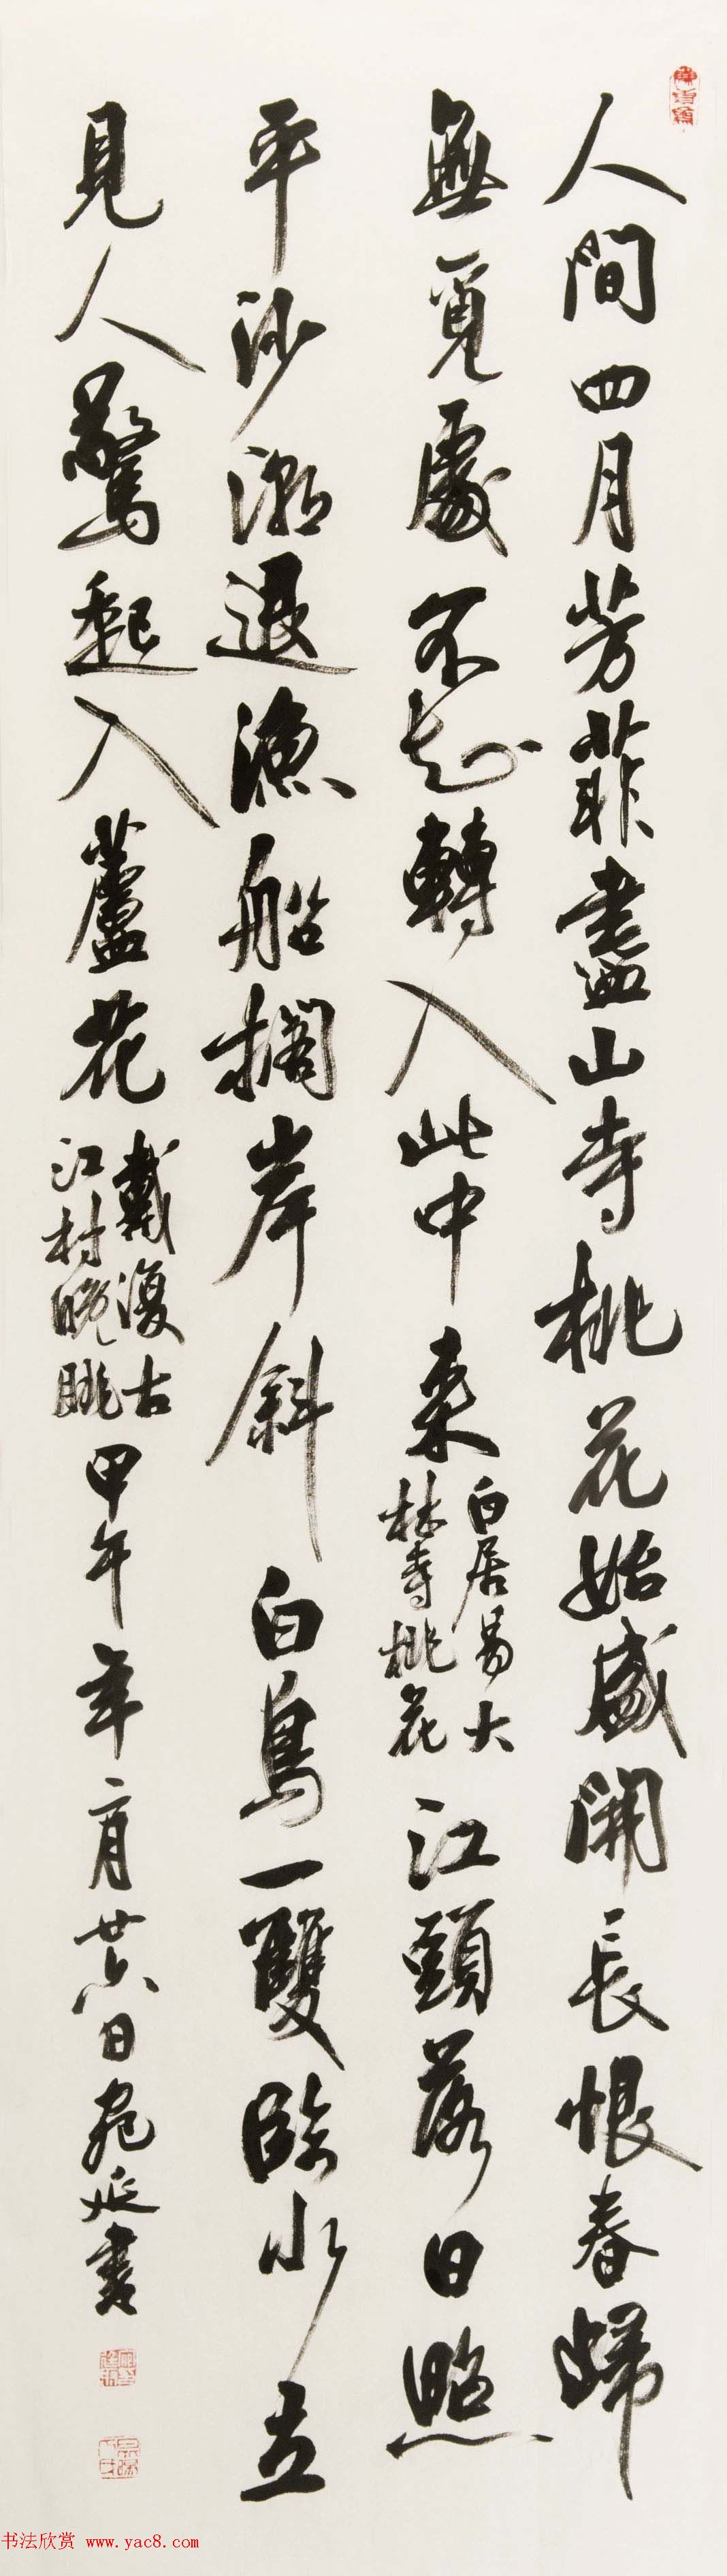 人間四月芳菲盡山寺桃花始盛開長恨春歸
無覓處不知轉入此中來
白居易大
林寺桃花
江頭落日照
平沙潮退漁船擱岸斜白鳥一雙臨水立
見人驚起入蘆花
戴復古
江村晚眺
甲午年二月廿六日宛延書
书法欣赏 www.yac8.com